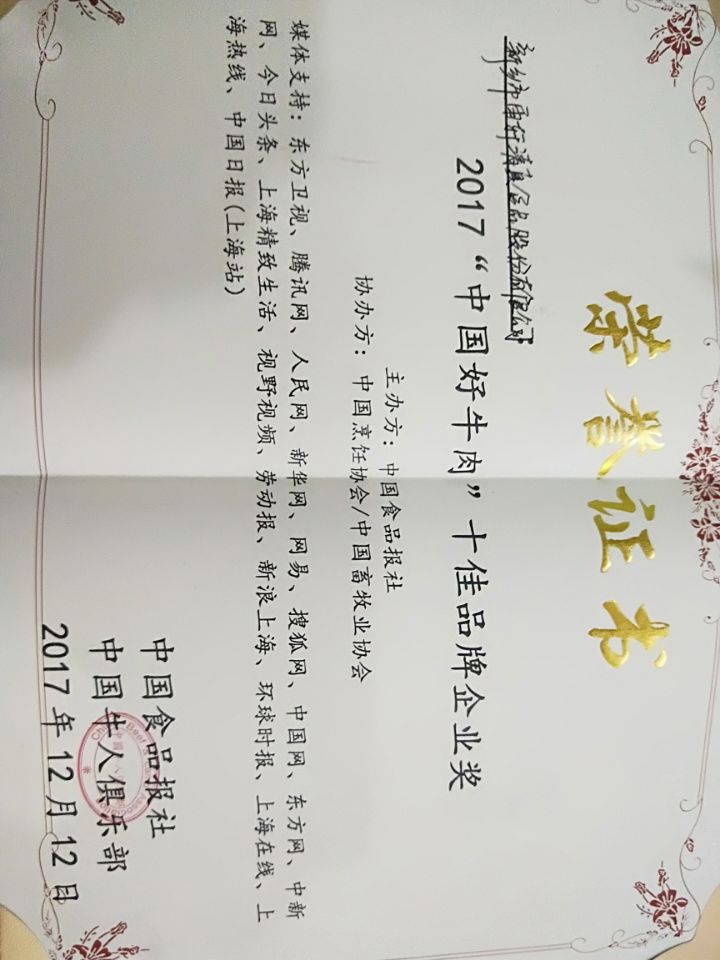 荣誉证书
新乡市雨轩清真食品股份有限公司
2017“中国好牛肉”十佳品牌企业奖
主办方：中国食品报社
协办方：中国烹饪协会/中国畜牧业协会
媒体支持：东方卫视、腾讯网、人民网、新华网、网易、搜狐网、中国网、东方网、中新
网、今日头条、上海精致生活、视野视频、劳动报、新浪上海、环球时报、上海在线、上
海热线、中国日报(上海站)
中国食品报社
中国牛人俱乐部
2017年12月12日